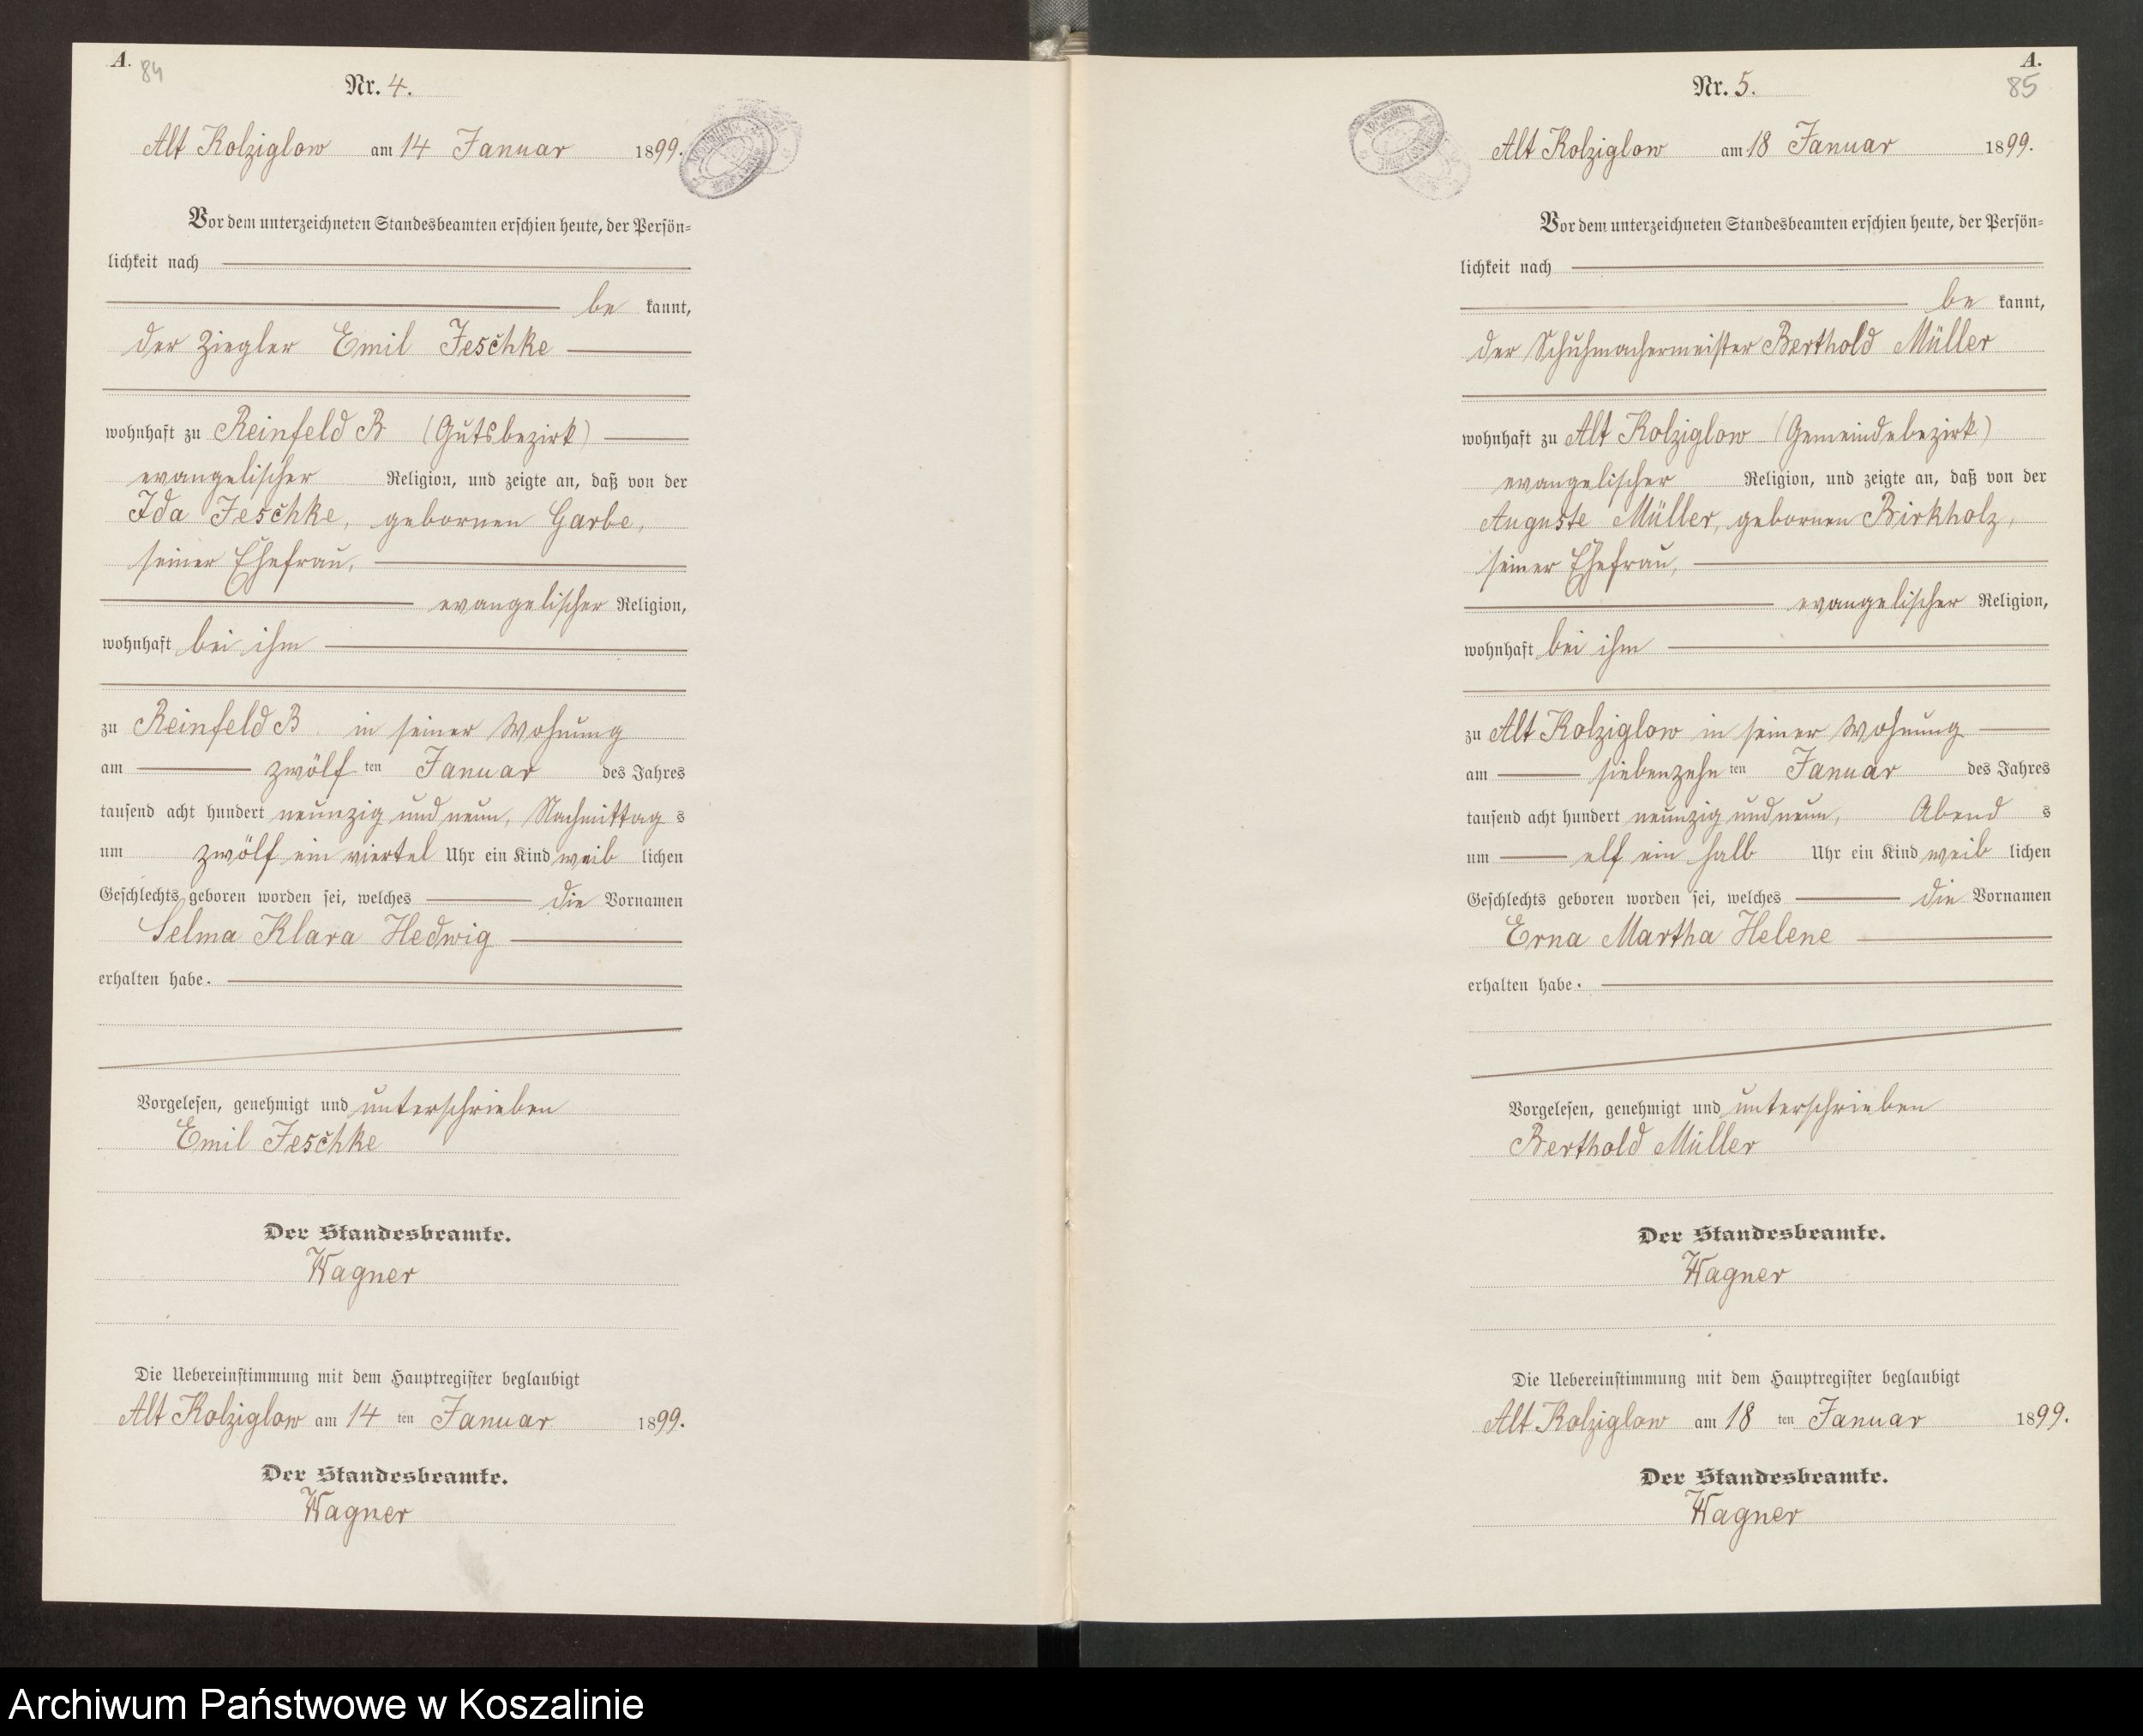 A.
84
Nr. 4.
Alt Kolziglow am 14 Januar 1899.
Vor dem unterzeichneten Standesbeamten erschien heute, der Persön-
lichkeit nach
be kannt,
der Ziegler Emil Jeschke
wohnhaft zu Reinfeld B (Gutsbezirk)
evangelischer Religion, und zeigte an, daß von der
Ida Jeschke, gebornen Garbe,
seiner Ehefrau,
evangelischer Religion,
wohnhaft bei ihm
zu Reinfeld B in seiner Wohnung
am zwölf ten Januar des Jahres
tausend acht hundert neunzig und neun, Nachmittag s
um zwölf ein viertel Uhr ein Kind weib lichen
Geschlechts geboren worden sei, welches die Vornamen
Selma Klara Hedwig
erhalten habe.
Vorgelesen, genehmigt und unterschrieben
Emil Jeschke
Der Standesbeamte.
Wagner
Die Uebereinstimmung mit dem Hauptregister beglaubigt
Alt Kolziglow am 14 ten Januar 1899.
Der Standesbeamte.
Wagner
A.
85
Nr. 5.
Alt Kolziglow am 18 Januar 1899.
Vor dem unterzeichneten Standesbeamten erschien heute, der Persön-
lichkeit nach
be kannt,
der Schuhmachermeister Berthold Müller
wohnhaft zu Alt Kolziglow (Gemeindebezirk)
evangelischer Religion, und zeigte an, daß von der
Auguste Müller, gebornen Birkholz,
seiner Ehefrau,
evangelischer Religion,
wohnhaft bei ihm
zu Alt Kolziglow in seiner Wohnung
am siebenzehn ten Januar des Jahres
tausend acht hundert neunzig und neun, Abend s
um elf ein halb Uhr ein Kind weib lichen
Geschlechts geboren worden sei, welches die Vornamen
Erna Martha Helene
erhalten habe.
Vorgelesen, genehmigt und unterschrieben
Berthold Müller
Der Standesbeamte.
Wagner
Die Uebereinstimmung mit dem Hauptregister beglaubigt
Alt Kolziglow am 18 ten Januar 1899.
Der Standesbeamte.
Wagner
Archiwum Państwowe w Koszalinie